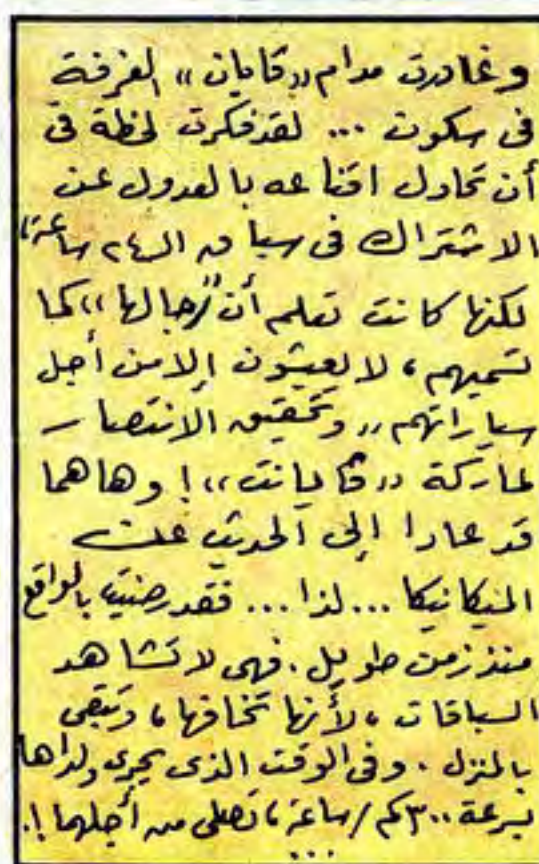 وغادرت مدام «ڤايان» الغرفة
فى سكوت ... لقد فكرت لحظة فى
أن تحاول اقناعه بالعدول عن
الاشتراك فى سباق الـ ٢٤ ساعة،
لكنها كانت تعلم أن «رجالها» كما
تسميهم، لا يعيشون إلا من أجل
سياراتهم،، وتحقيق الانتصار
لماركة «ڤايانت»! وهاهما
قد عادا إلى الحديث عن
الميكانيكا ... لذا ... فقد رضيت بالواقع
منذ زمن طويل. فهى لا تشاهد
السباقات، لأنها تخافها، وتبقى
بالمنزل. وفى الوقت الذى يجرى ولداها
بسرعة ٣٠٠ كم/ساعة، تصلى من أجلهما!.
...